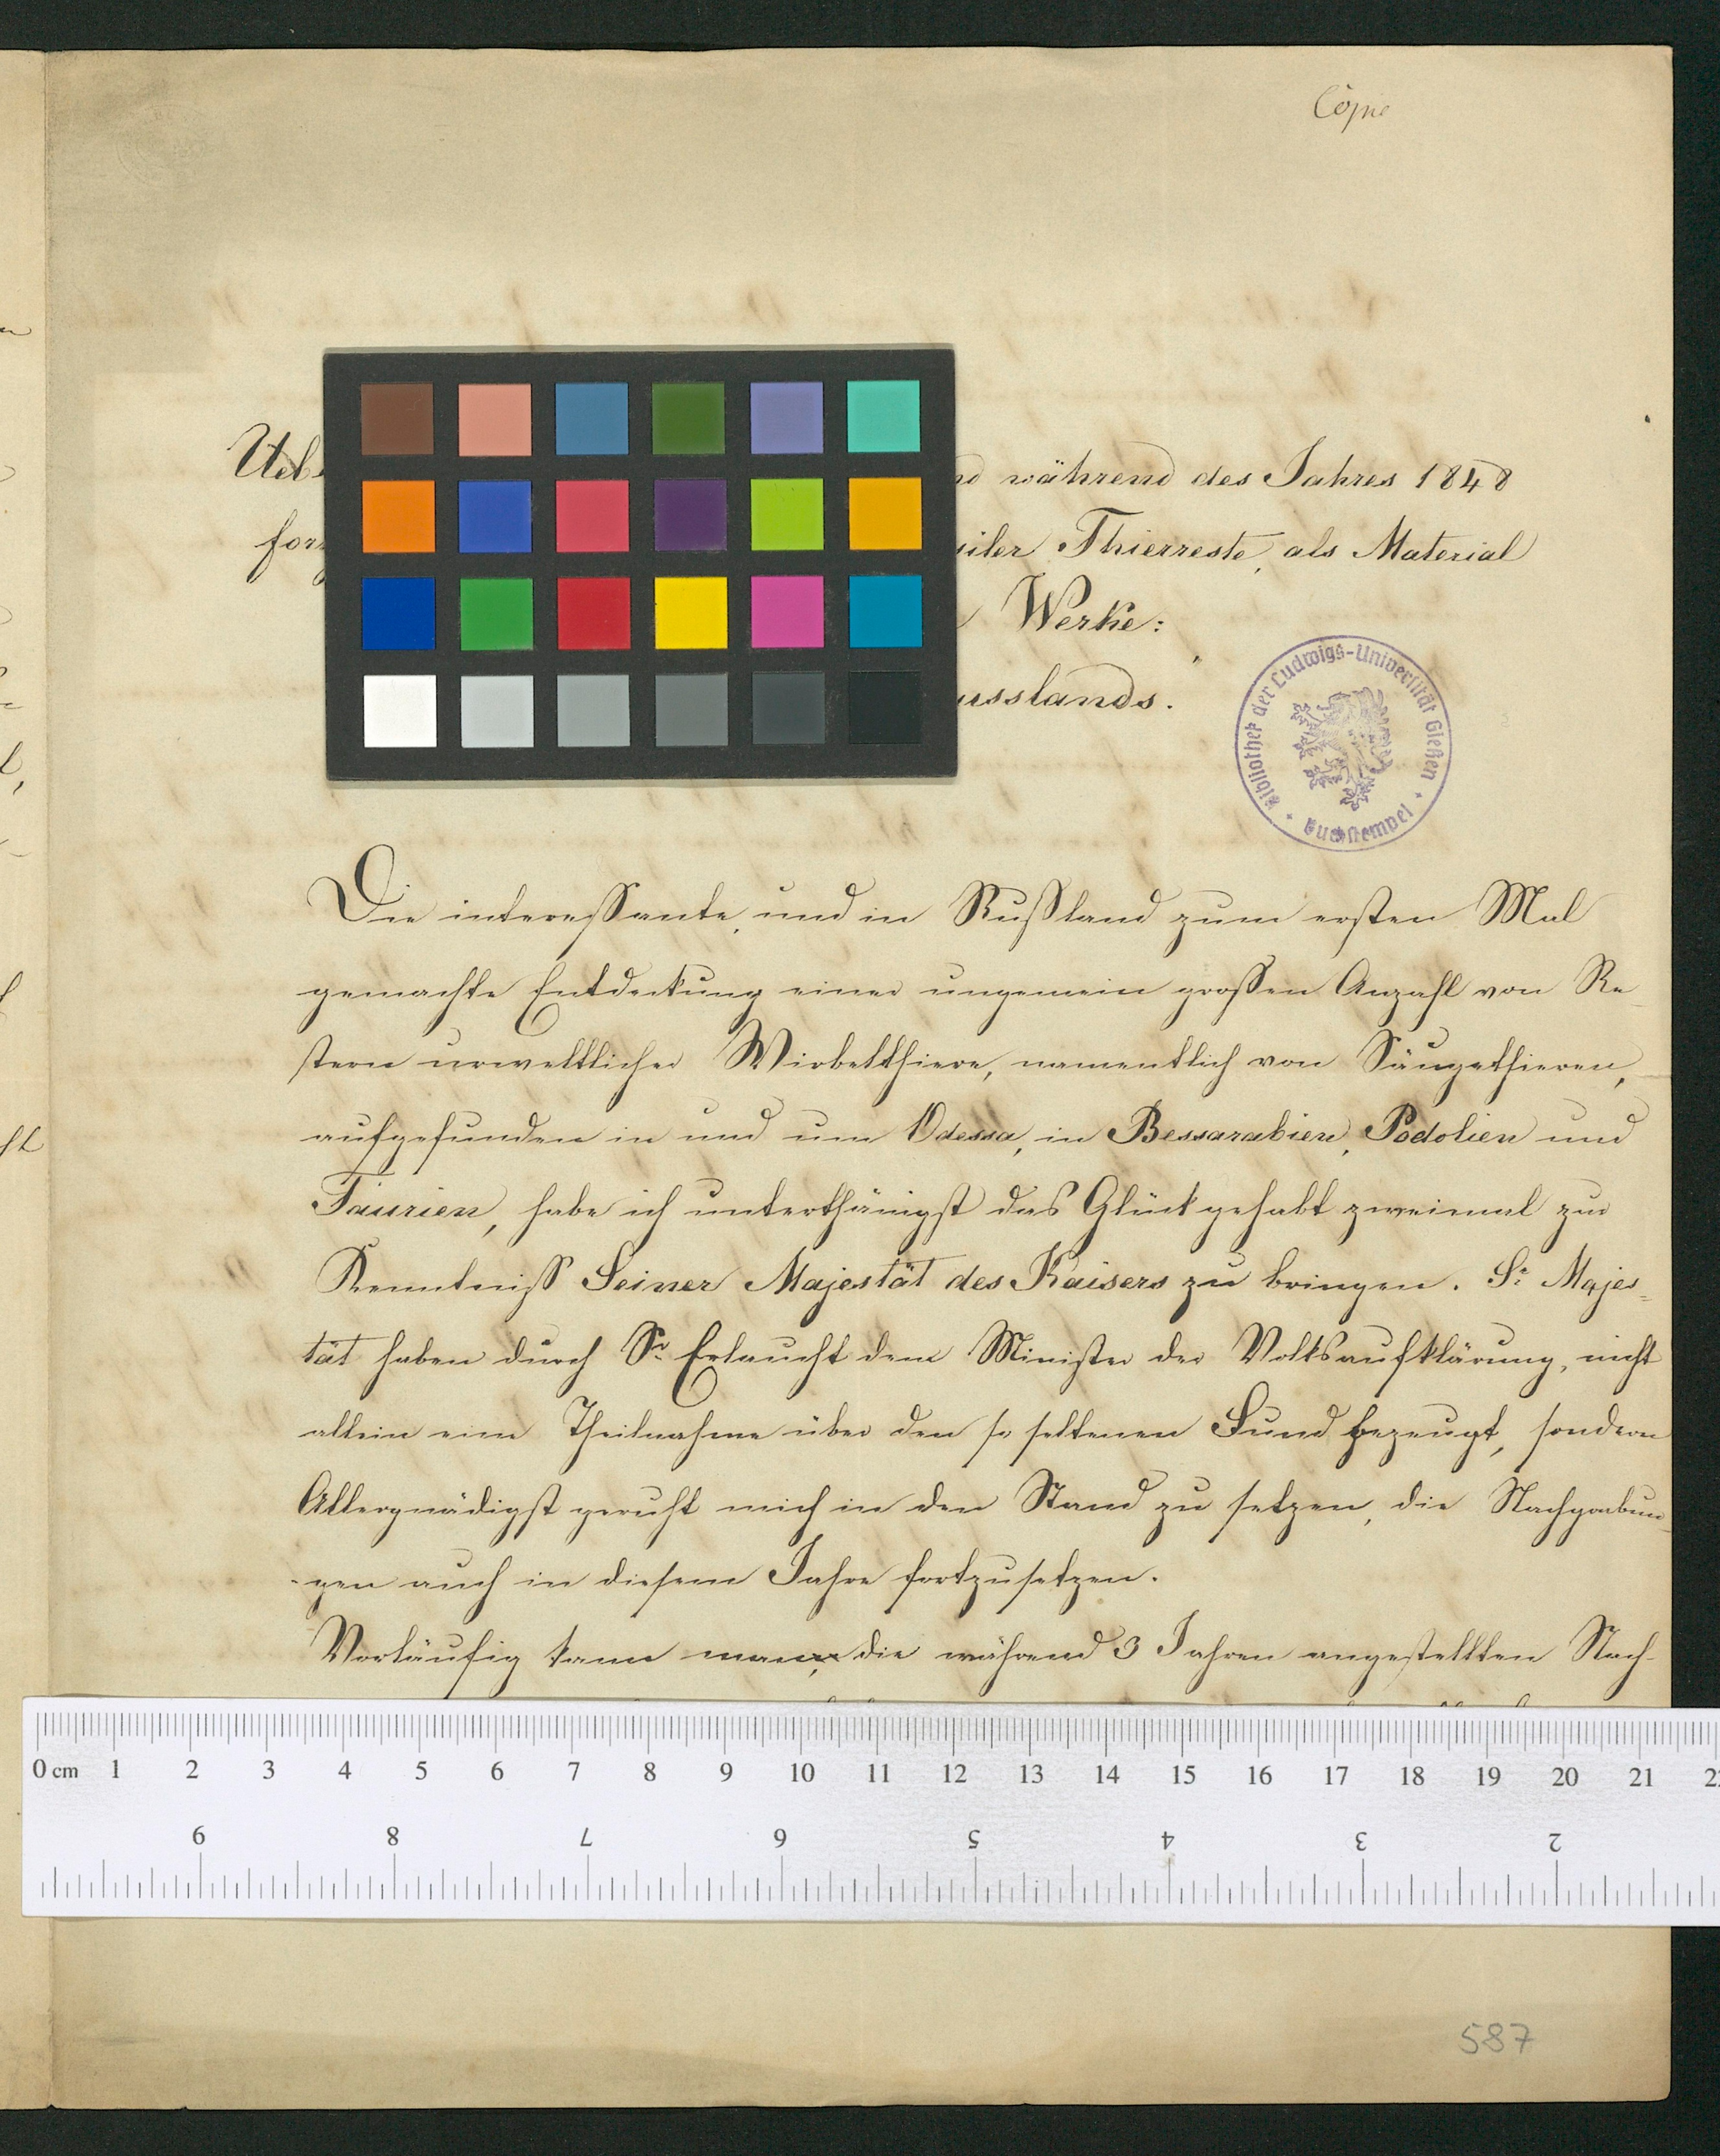 Copie
während des Jahres 1848
Thierreste, als Material
Werke:
usslands.
Bibliothek der Ludwigs-Universität Gießen
Buchstempel
Die interessante, und in Russland zum ersten Mal
gemachte Entdeckung einer ungemein grossen Anzahl von Re-
stern urweltlicher Wirbelthiere, namentlich von Säugethieren,
aufgefunden in und um Odessa, in Bessarabien, Podolien und
Taurien, habe ich unterthänigst das Glück gehabt zweimal zur
Kenntniss Seiner Majestät des Kaisers zu bringen. Sr Majes-
tät haben durch Sr Erlaucht dem Minister der Volksaufklärung, nicht
allein eine Theilnahme über den so seltenen Fund bezeugt, sondern
Allergnädigst geruht mich in den Stand zu setzen, die Nachgrabun-
gen auch in diesem Jahre fortzusetzen.
Vorläufig kann man, die während 3 Jahren angestellten Nach-
0 cm 1 2 3 4 5 6 7 8 9 10 11 12 13 14 15 16 17 18 19 20 21
9 8 7 6 5 4 3 2
587